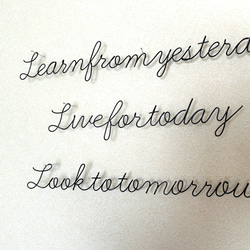 Learnfromyesterd
Livefortoday
Looktotomorrow